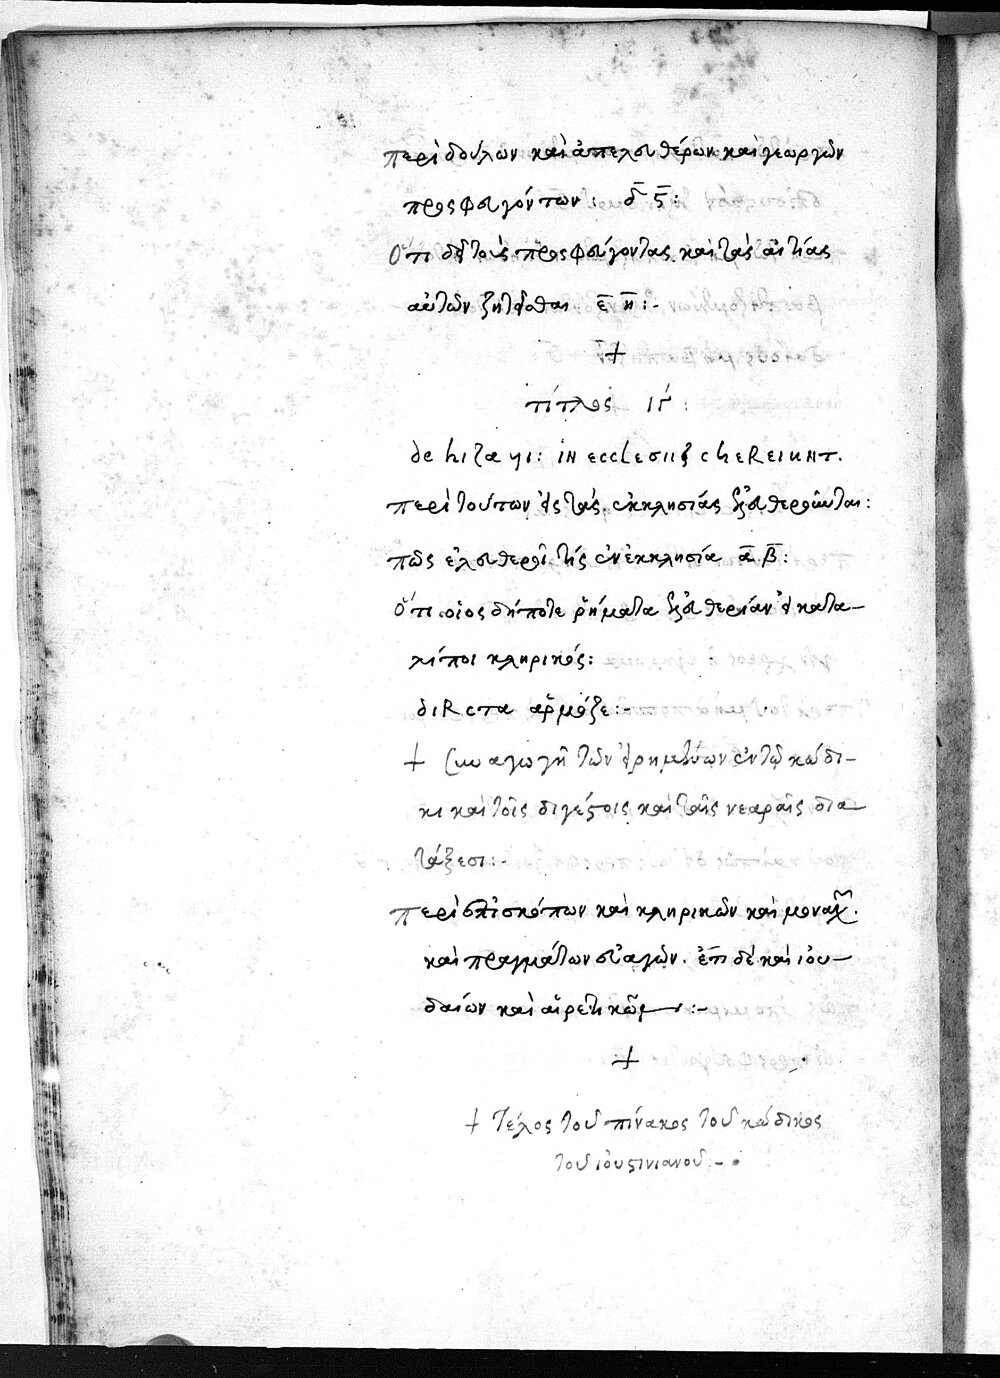 περὶ δούλων καὶ ἀπελευθέρων καὶ γεωργῶν
προσφυγόντων: δ̅ ς̅:
Ὅτι δεῖ τοὺς προσφεύγοντας καὶ τὰς αἰτίας
αὐτῶν ζητεῖσθαι ε̅ η̅:-
+
τίτλος ιγ΄:
de hιζα γι: ιN eccLeσιιξ cheReιuNτ.
περὶ τούτων εἰς τὰς ἐκκλησίας ἐλευθεροῦνται:
πῶς ἐλευθεροῖ τίς ἐν ἐκκλησία α̅ β̅:
Ὅτι οἱοσδήποτε ῥήματα ἐλευθερίαν εἰ κατα-
λίποι κληρικός:
διRcτα ἁρμόζει:-
+ Συναγωγὴ τῶν εἰρημένων ἐν τῷ κώδι-
κι καὶ τοῖς διγέστοις καὶ ταῖς νεαραῖς δια-
τάξεσι:-
περὶ ἐπισκόπων καὶ κληρικῶν καὶ μοναχῶν.
καὶ πραγμάτων εὐαγῶν. ἔτι δὲ καὶ ἰου-
δαίων καὶ αἱρετικῶν:-
+
+ Τέλος τοῦ πίνακος τοῦ κώδικος
τοῦ ἰουστινιανοῦ -.